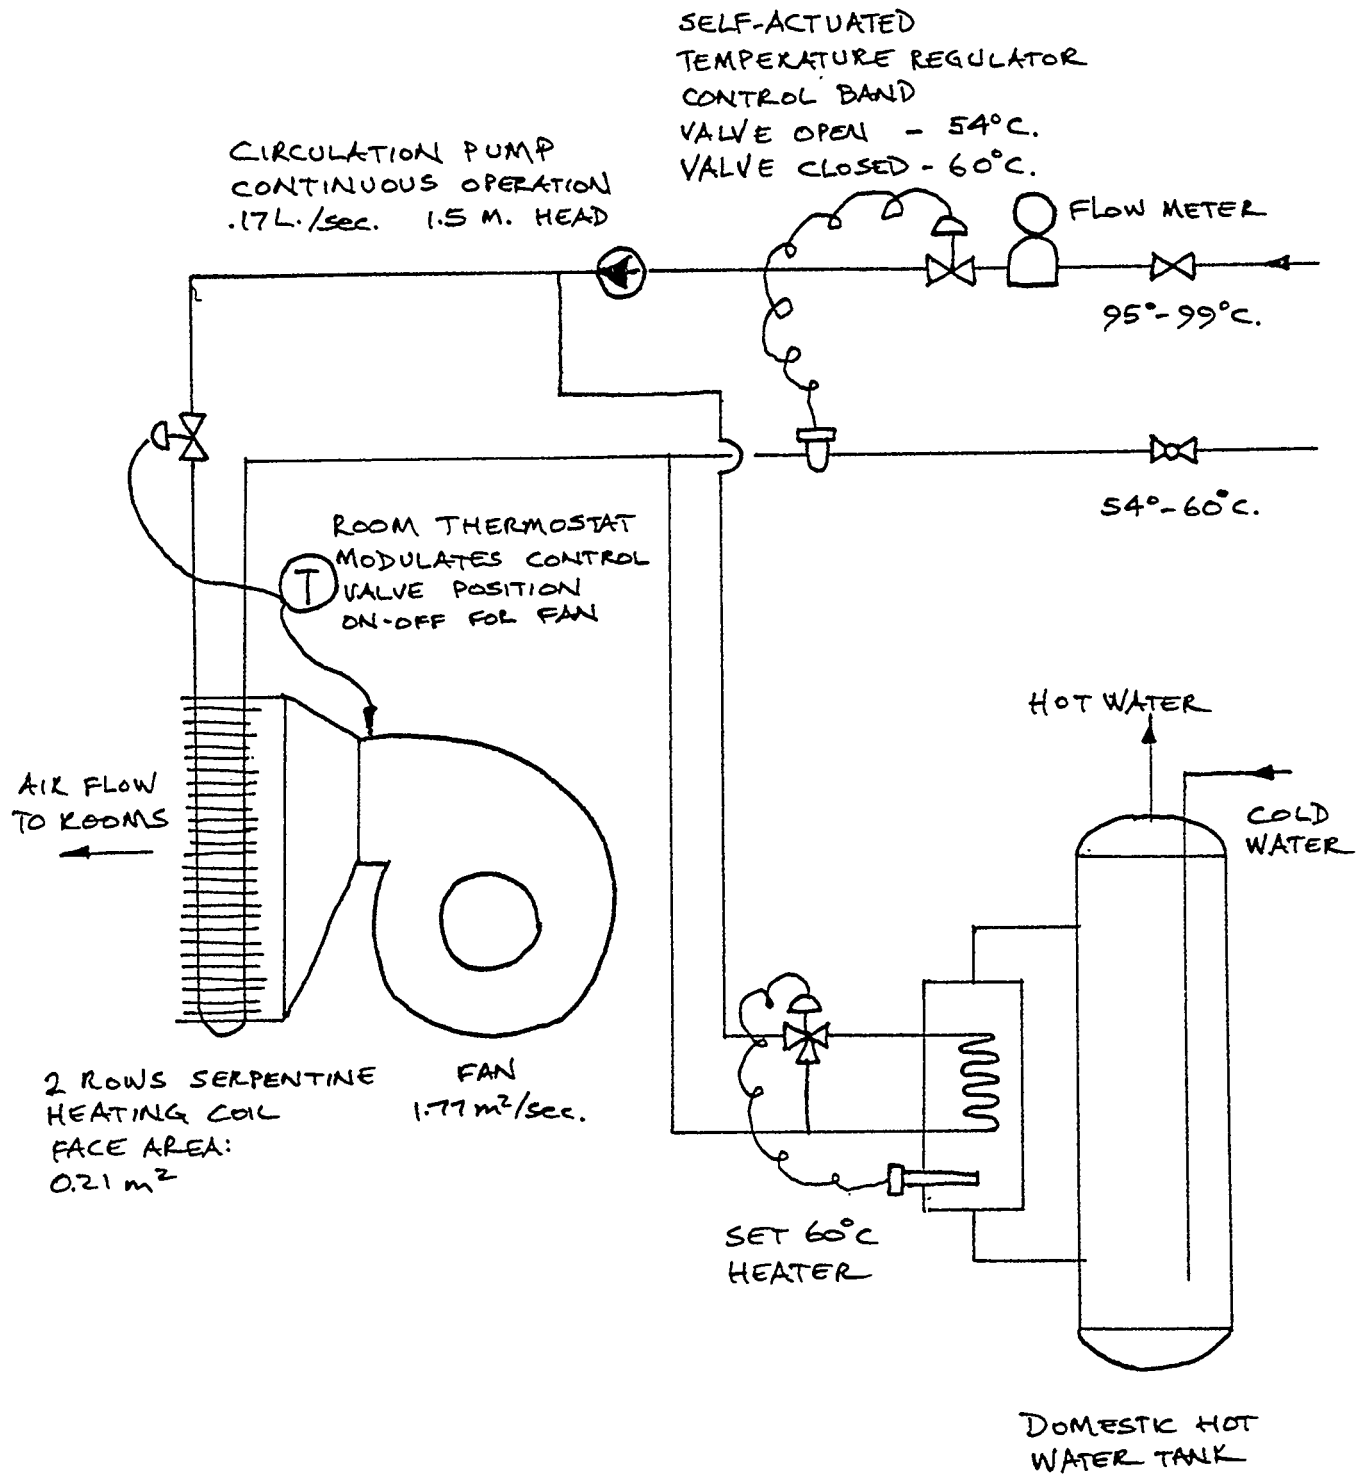 SELF-ACTUATED
TEMPERATURE REGULATOR
CONTROL BAND
VALVE OPEN - 54°C.
VALVE CLOSED - 60°C.
CIRCULATION PUMP
CONTINUOUS OPERATION
.17L./sec. 1.5 M. HEAD
FLOW METER
95°-99°C.
54°-60°C.
ROOM THERMOSTAT
MODULATES CONTROL
VALVE POSITION
ON-OFF FOR FAN
T
HOT WATER
AIR FLOW
TO ROOMS
COLD
WATER
2 ROWS SERPENTINE
HEATING COIL
FACE AREA:
0.21 m²
FAN
1.77m²/sec.
SET 60°C
HEATER
DOMESTIC HOT
WATER TANK